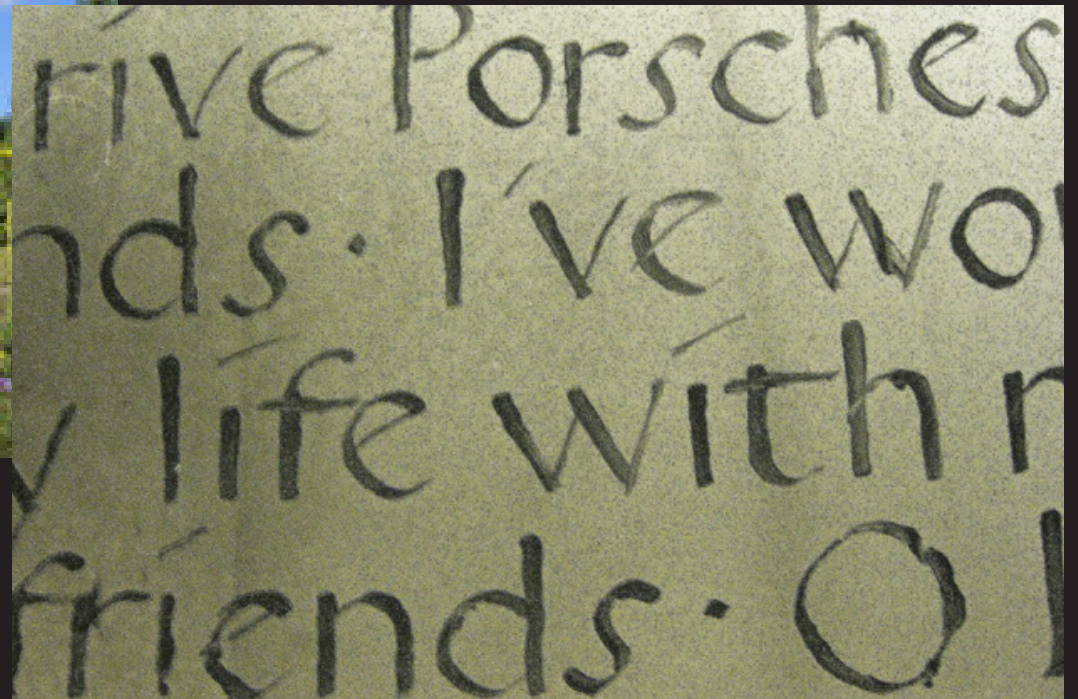 rive Porsches
nds. I've wo
y life with r
friends. O l